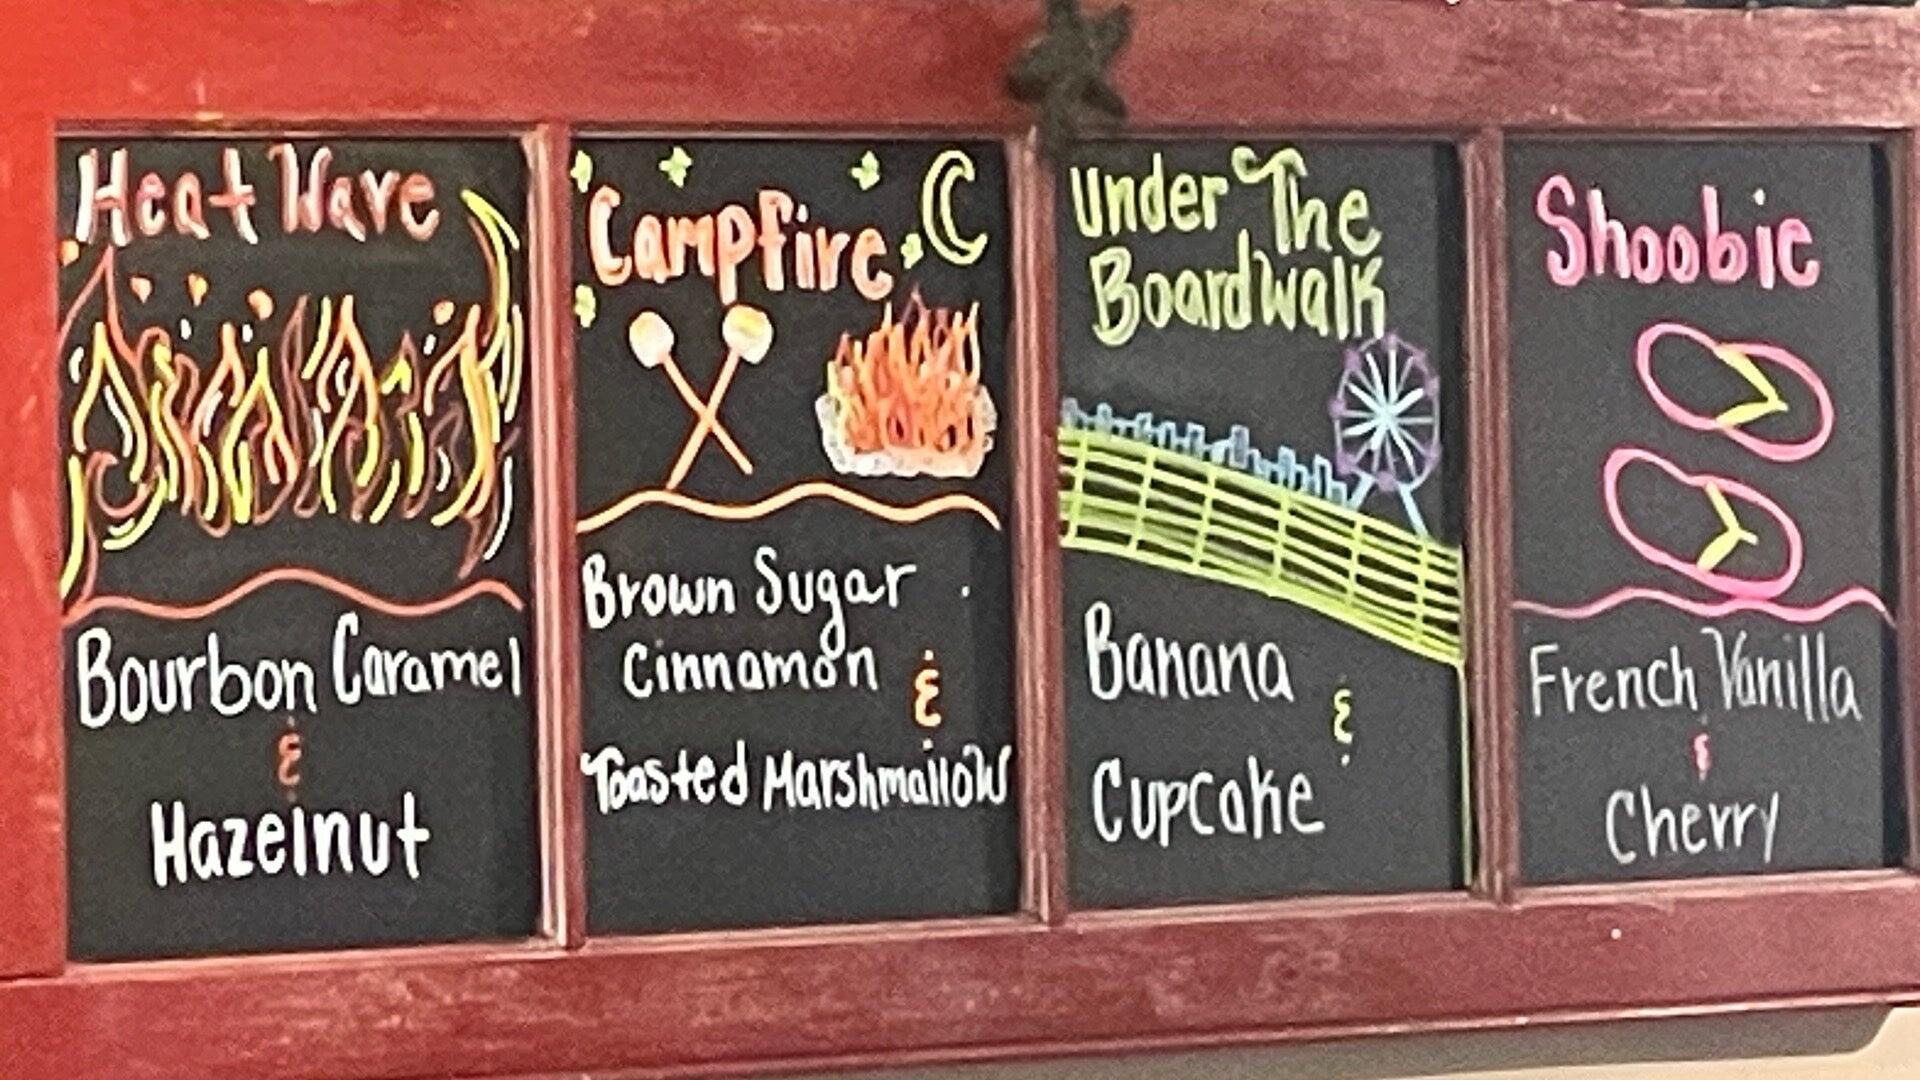 Heat Wave
Bourbon Caramel
&
Hazelnut
Campfire
Brown Sugar
Cinnamon &
Toasted Marshmallow
Under The
Boardwalk
Banana &
Cupcake
Shoobie
French Vanilla
&
Cherry